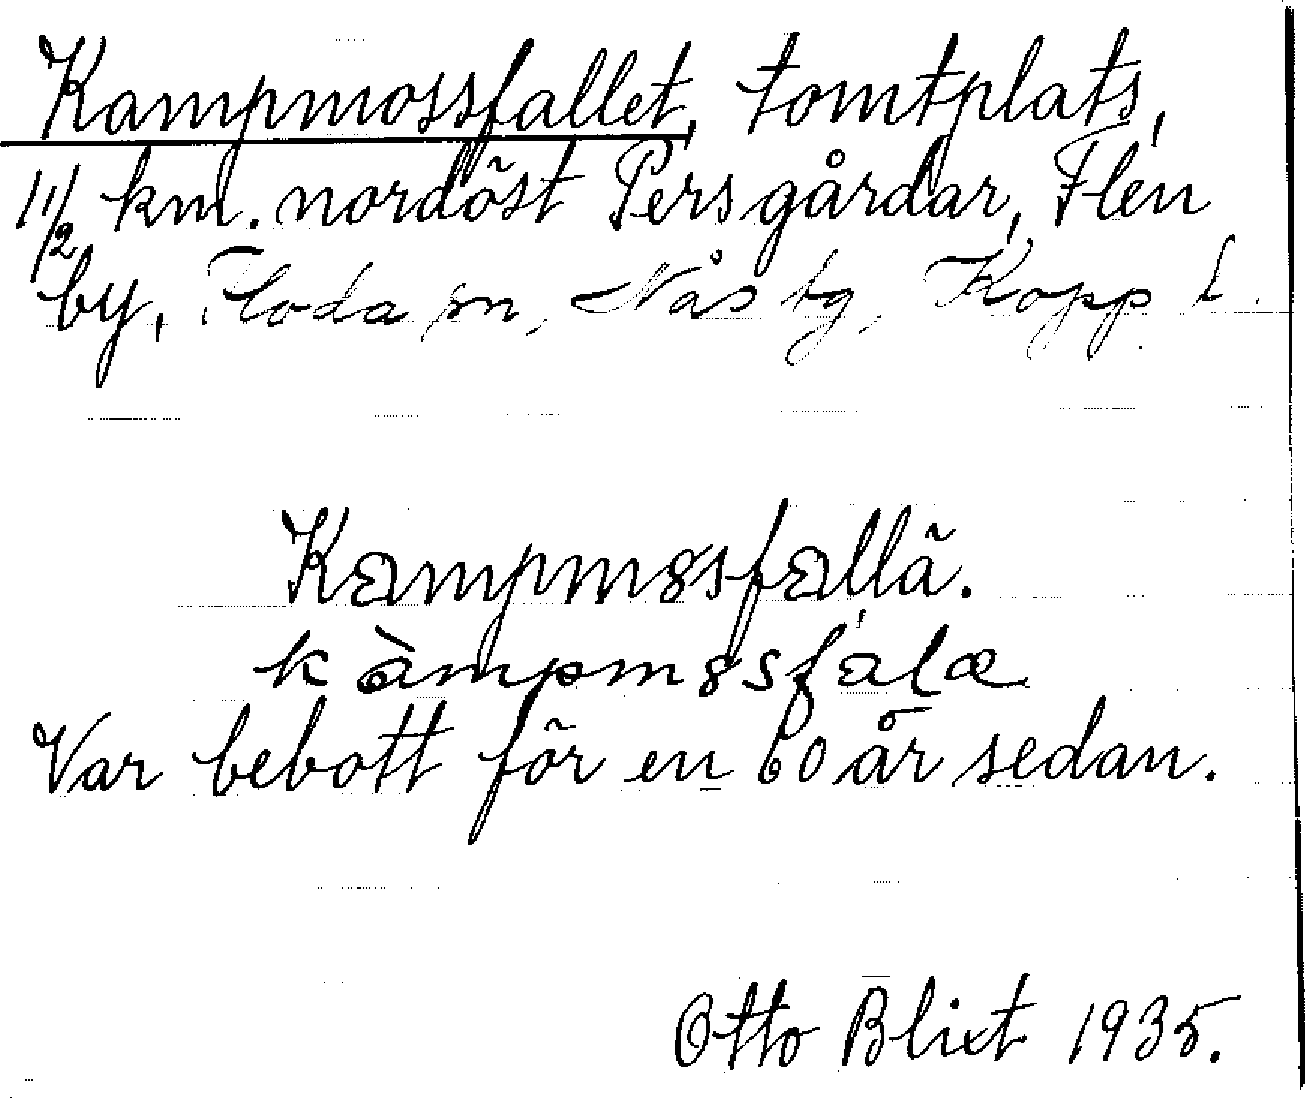 Kampmossfallet, tomtplats,
1 1/2 km. nordöst Persgårdar, Flen
by, Floda sn, Nås tg, Kopp. l.
Kampmȣsfallä.
kàmpmȣsfalæ
Var bebott för en 60 år sedan.
Otto Blixt 1935.